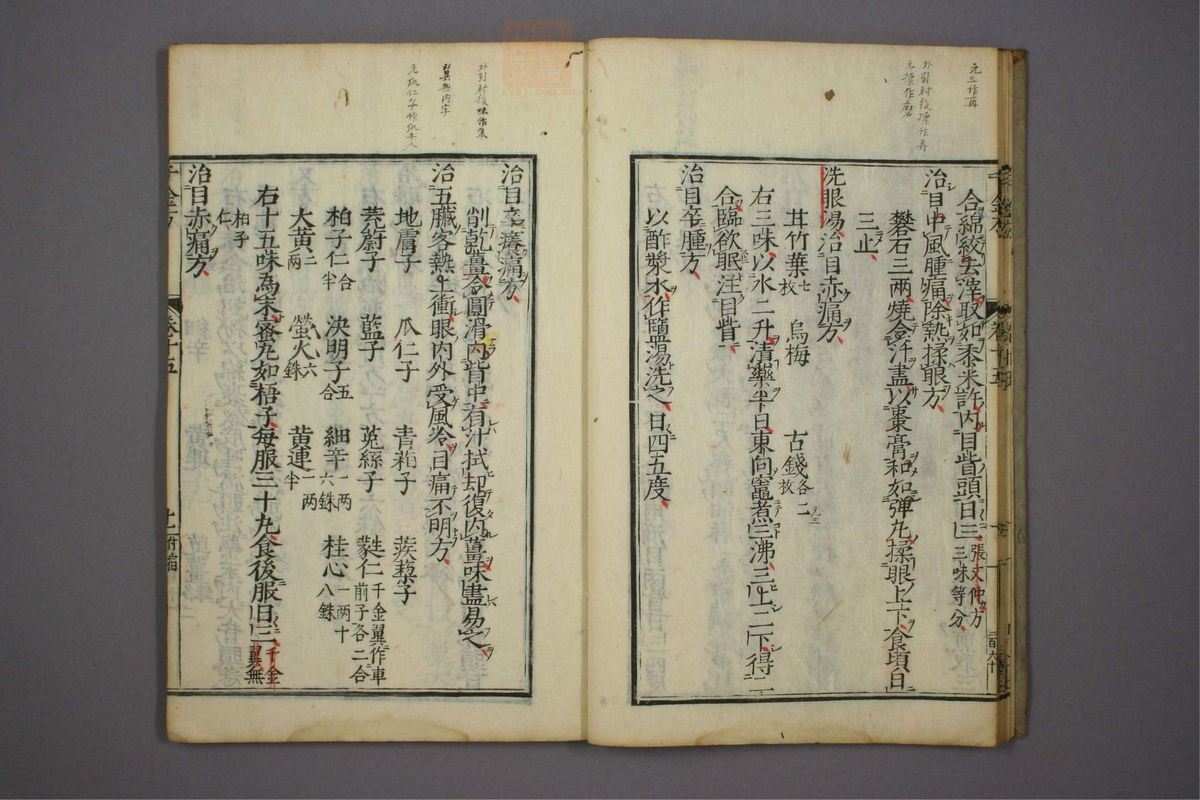 合綿絞去滓取如黍米許内目眥頭日三張文仲方三味等分
治目中風腫痛除熱揉眼方
礬石三兩燒令汁盡以棗膏和如彈丸揉眼上下食頃日
三止
洗眼湯治目赤痛方
甘竹葉七枚 烏梅 古錢各二枚
右三味以水二升清藥半日東向竈煮三沸三上三下得二
合臨欲眠注目眥
治目卒腫方
以酢漿水作鹽湯洗之日四五度
治目卒癢痛方
削乾薑令圓滑内眥中有汁拭却復内薑味盡易之
治五臟客熱上衝眼内外受風冷目痛不明方
地膚子 瓜仁子 青葙子 蒺蔾子
茺蔚子 藍子 菟絲子 蕤仁千金翼作車前子各二合
柏子仁合半 決明子五合 細辛一兩六銖 桂心一兩十八銖
大黄二兩 螢火六銖 黄連一兩半
右十五味為末蜜丸如梧子每服三十丸食後服日三千金翼無
柏子仁
治目赤痛方
卷十五